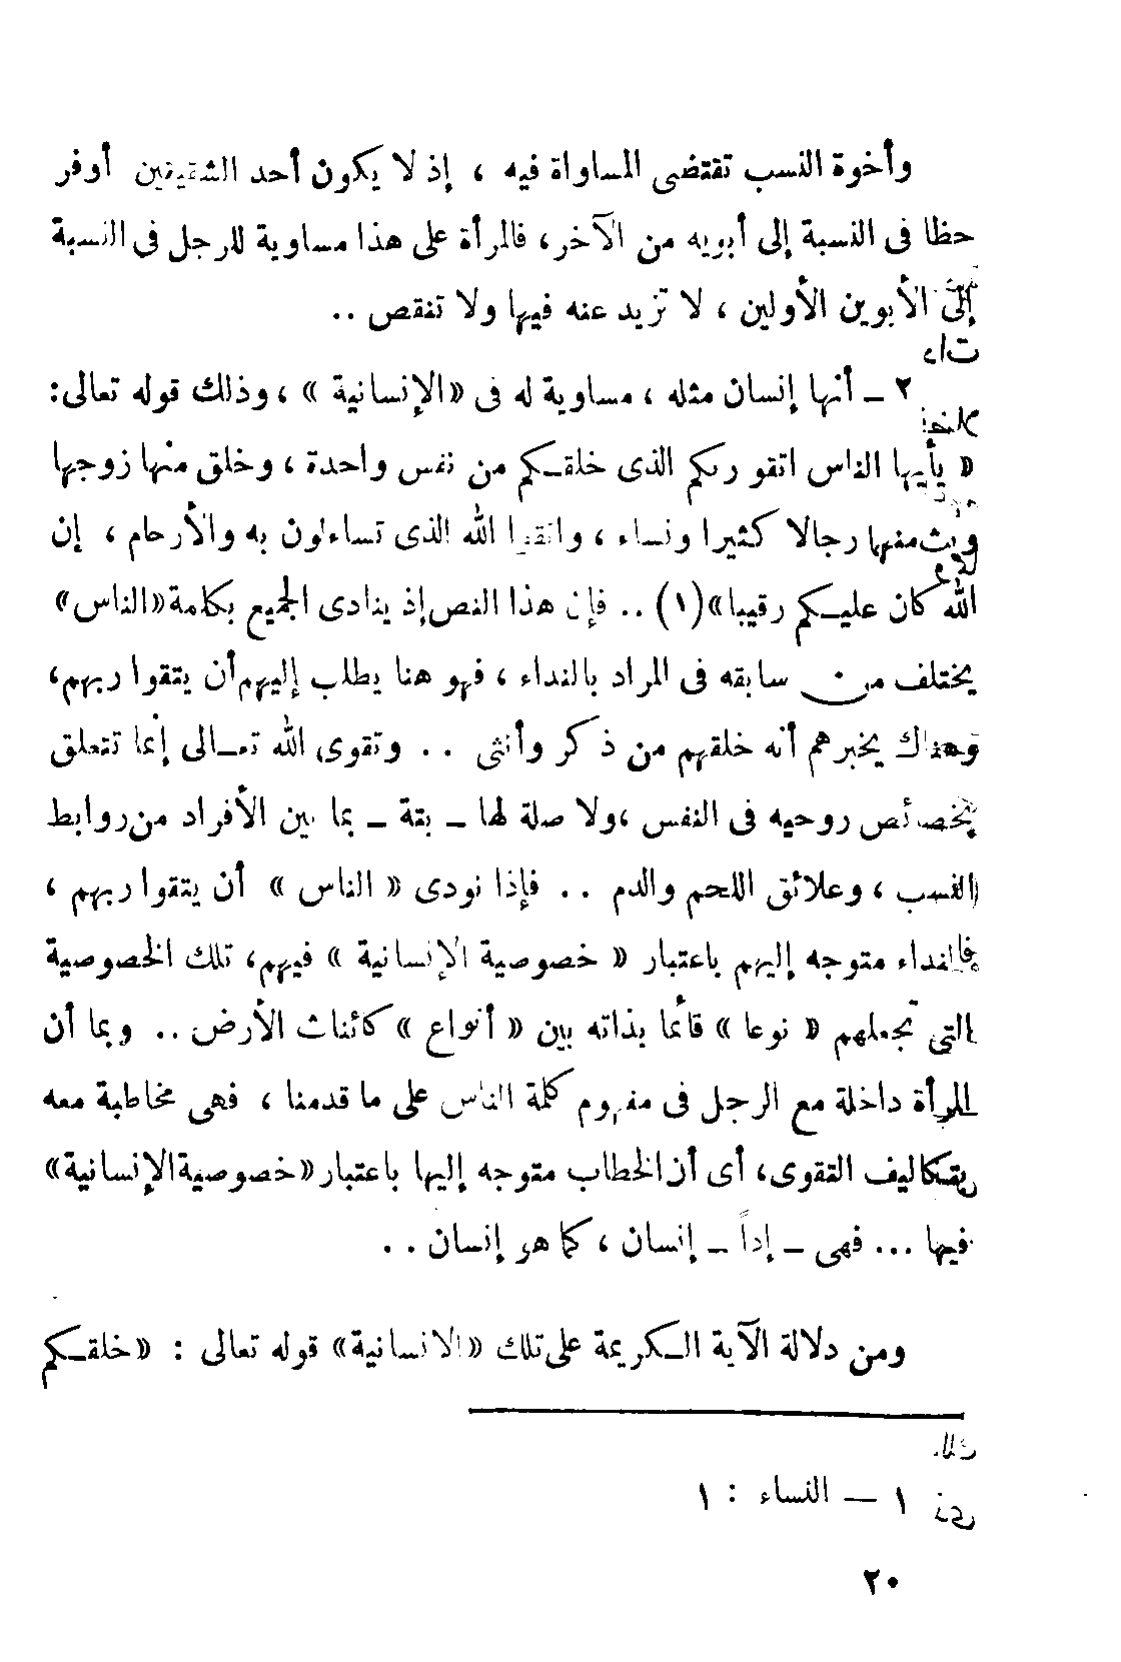 وأخوة النسب تقتضى المساواة فيه ، إذ لا يكون أحد الشقيقين أوفر
حظا فى النسبة إلى أبويه من الآخر، فالمرأة على هذا مساوية للرجل فى النسبة
إلى الأبوين الأولين ، لا تزيد عنه فيها ولا تنقص ..
٢ ــ أنها إنسان مثله ، مساوية له فى «الإنسانية » ، وذلك قوله تعالى:
« يأيها الناس اتقو ربكم الذى خلقـكم من نفس واحدة ، وخلق منها زوجها
وبث منهما رجالا كثيرا ونساء ، واتقوا الله الذى تساءلون به والأرحام ، إن
الله كان عليـكم رقيبا»(١) .. فإن هذا النص إذ ينادى الجميع بكلمة «الناس»
يختلف من سابقه فى المراد بالنداء ، فهو هنا يطلب إليهم أن يتقوا ربهم،
وهناك يخبرهم أنه خلقهم من ذكر وأنثى .. وتقوى الله تعـالى إنما تتعلق
بخصائص روحيه فى النفس ،ولا صلة لها ــ بتة ــ بما بين الأفراد من روابط
النسب ، وعلائق اللحم والدم .. فإذا نودى « الناس » أن يتقوا ربهم ،
فالنداء متوجه إليهم باعتبار « خصوصية الإنسانية » فيهم، تلك الخصوصية
التى تجعلهم « نوعا » قائما بذاته بين « أنواع » كائنات الأرض .. وبما أن
المرأة داخلة مع الرجل فى مفهوم كلمة الناس على ما قدمنا ، فهى مخاطبة معه
بتكاليف التقوى، أى أن الخطاب متوجه إليها باعتبار «خصوصية الإنسانية»
فيها ... فهى ــ إذاً ــ إنسان ، كما هو إنسان ..
ومن دلالة الآية الـكريمة على تلك «الانسانية» قوله تعالى : «خلقـكم
١ — النساء : ١
٢٠